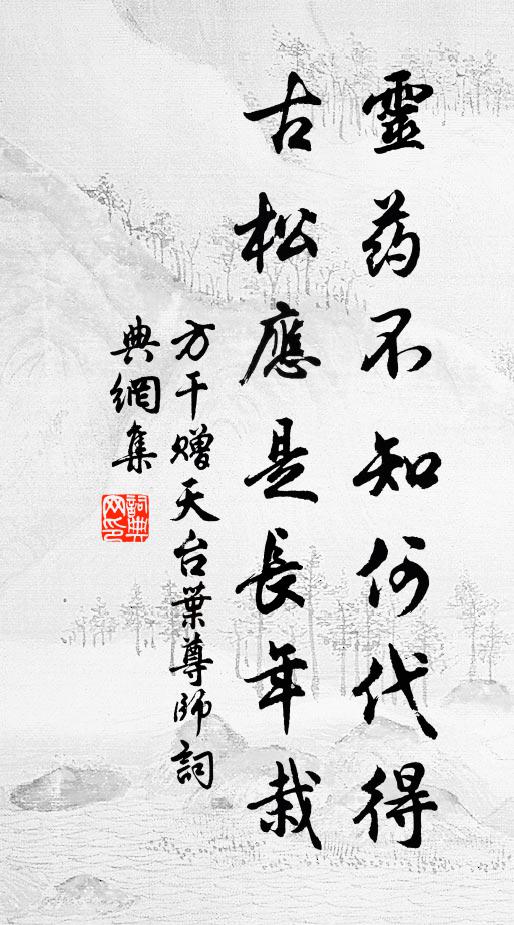 靈药不知何代得
古松應是長年栽
方干赠天台葉尊師詞
典網集
詞典网印